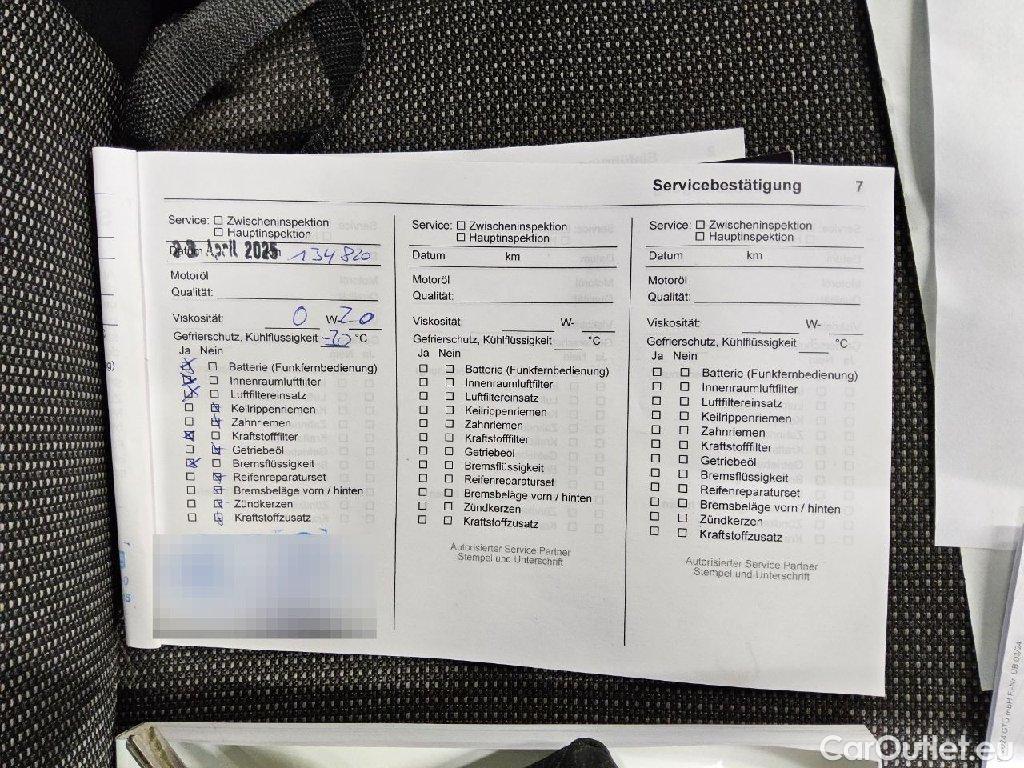 Servicebestätigung 7
Service: Zwischeninspektion
Hauptinspektion
April 2025 134820
Motoröl
Qualität:
Viskosität: 0 W-20
Gefrierschutz, Kühlflüssigkeit °C
Ja Nein
Batterie (Funkfernbedienung)
Innenraumluftfilter
Luftfiltereinsatz
Keilrippenriemen
Zahnriemen
Kraftstofffilter
Getriebeöl
Bremsflüssigkeit
Reifenreparaturset
Bremsbeläge vorn / hinten
Zündkerzen
Kraftstoffzusatz
Service: Zwischeninspektion
Hauptinspektion
Datum km
Motoröl
Qualität:
Viskosität: W-
Gefrierschutz, Kühlflüssigkeit °C
Ja Nein
Batterie (Funkfernbedienung)
Innenraumluftfilter
Luftfiltereinsatz
Keilrippenriemen
Zahnriemen
Kraftstofffilter
Getriebeöl
Bremsflüssigkeit
Reifenreparaturset
Bremsbeläge vorn / hinten
Zündkerzen
Kraftstoffzusatz
Autorisierter Service Partner
Stempel und Unterschrift
Service: Zwischeninspektion
Hauptinspektion
Datum km
Motoröl
Qualität:
Viskosität: W-
Gefrierschutz, Kühlflüssigkeit °C
Ja Nein
Batterie (Funkfernbedienung)
Innenraumluftfilter
Luftfiltereinsatz
Keilrippenriemen
Zahnriemen
Kraftstofffilter
Getriebeöl
Bremsflüssigkeit
Reifenreparaturset
Bremsbeläge vorn / hinten
Zündkerzen
Kraftstoffzusatz
Autorisierter Service Partner
Stempel und Unterschrift
CarOutlet.eu